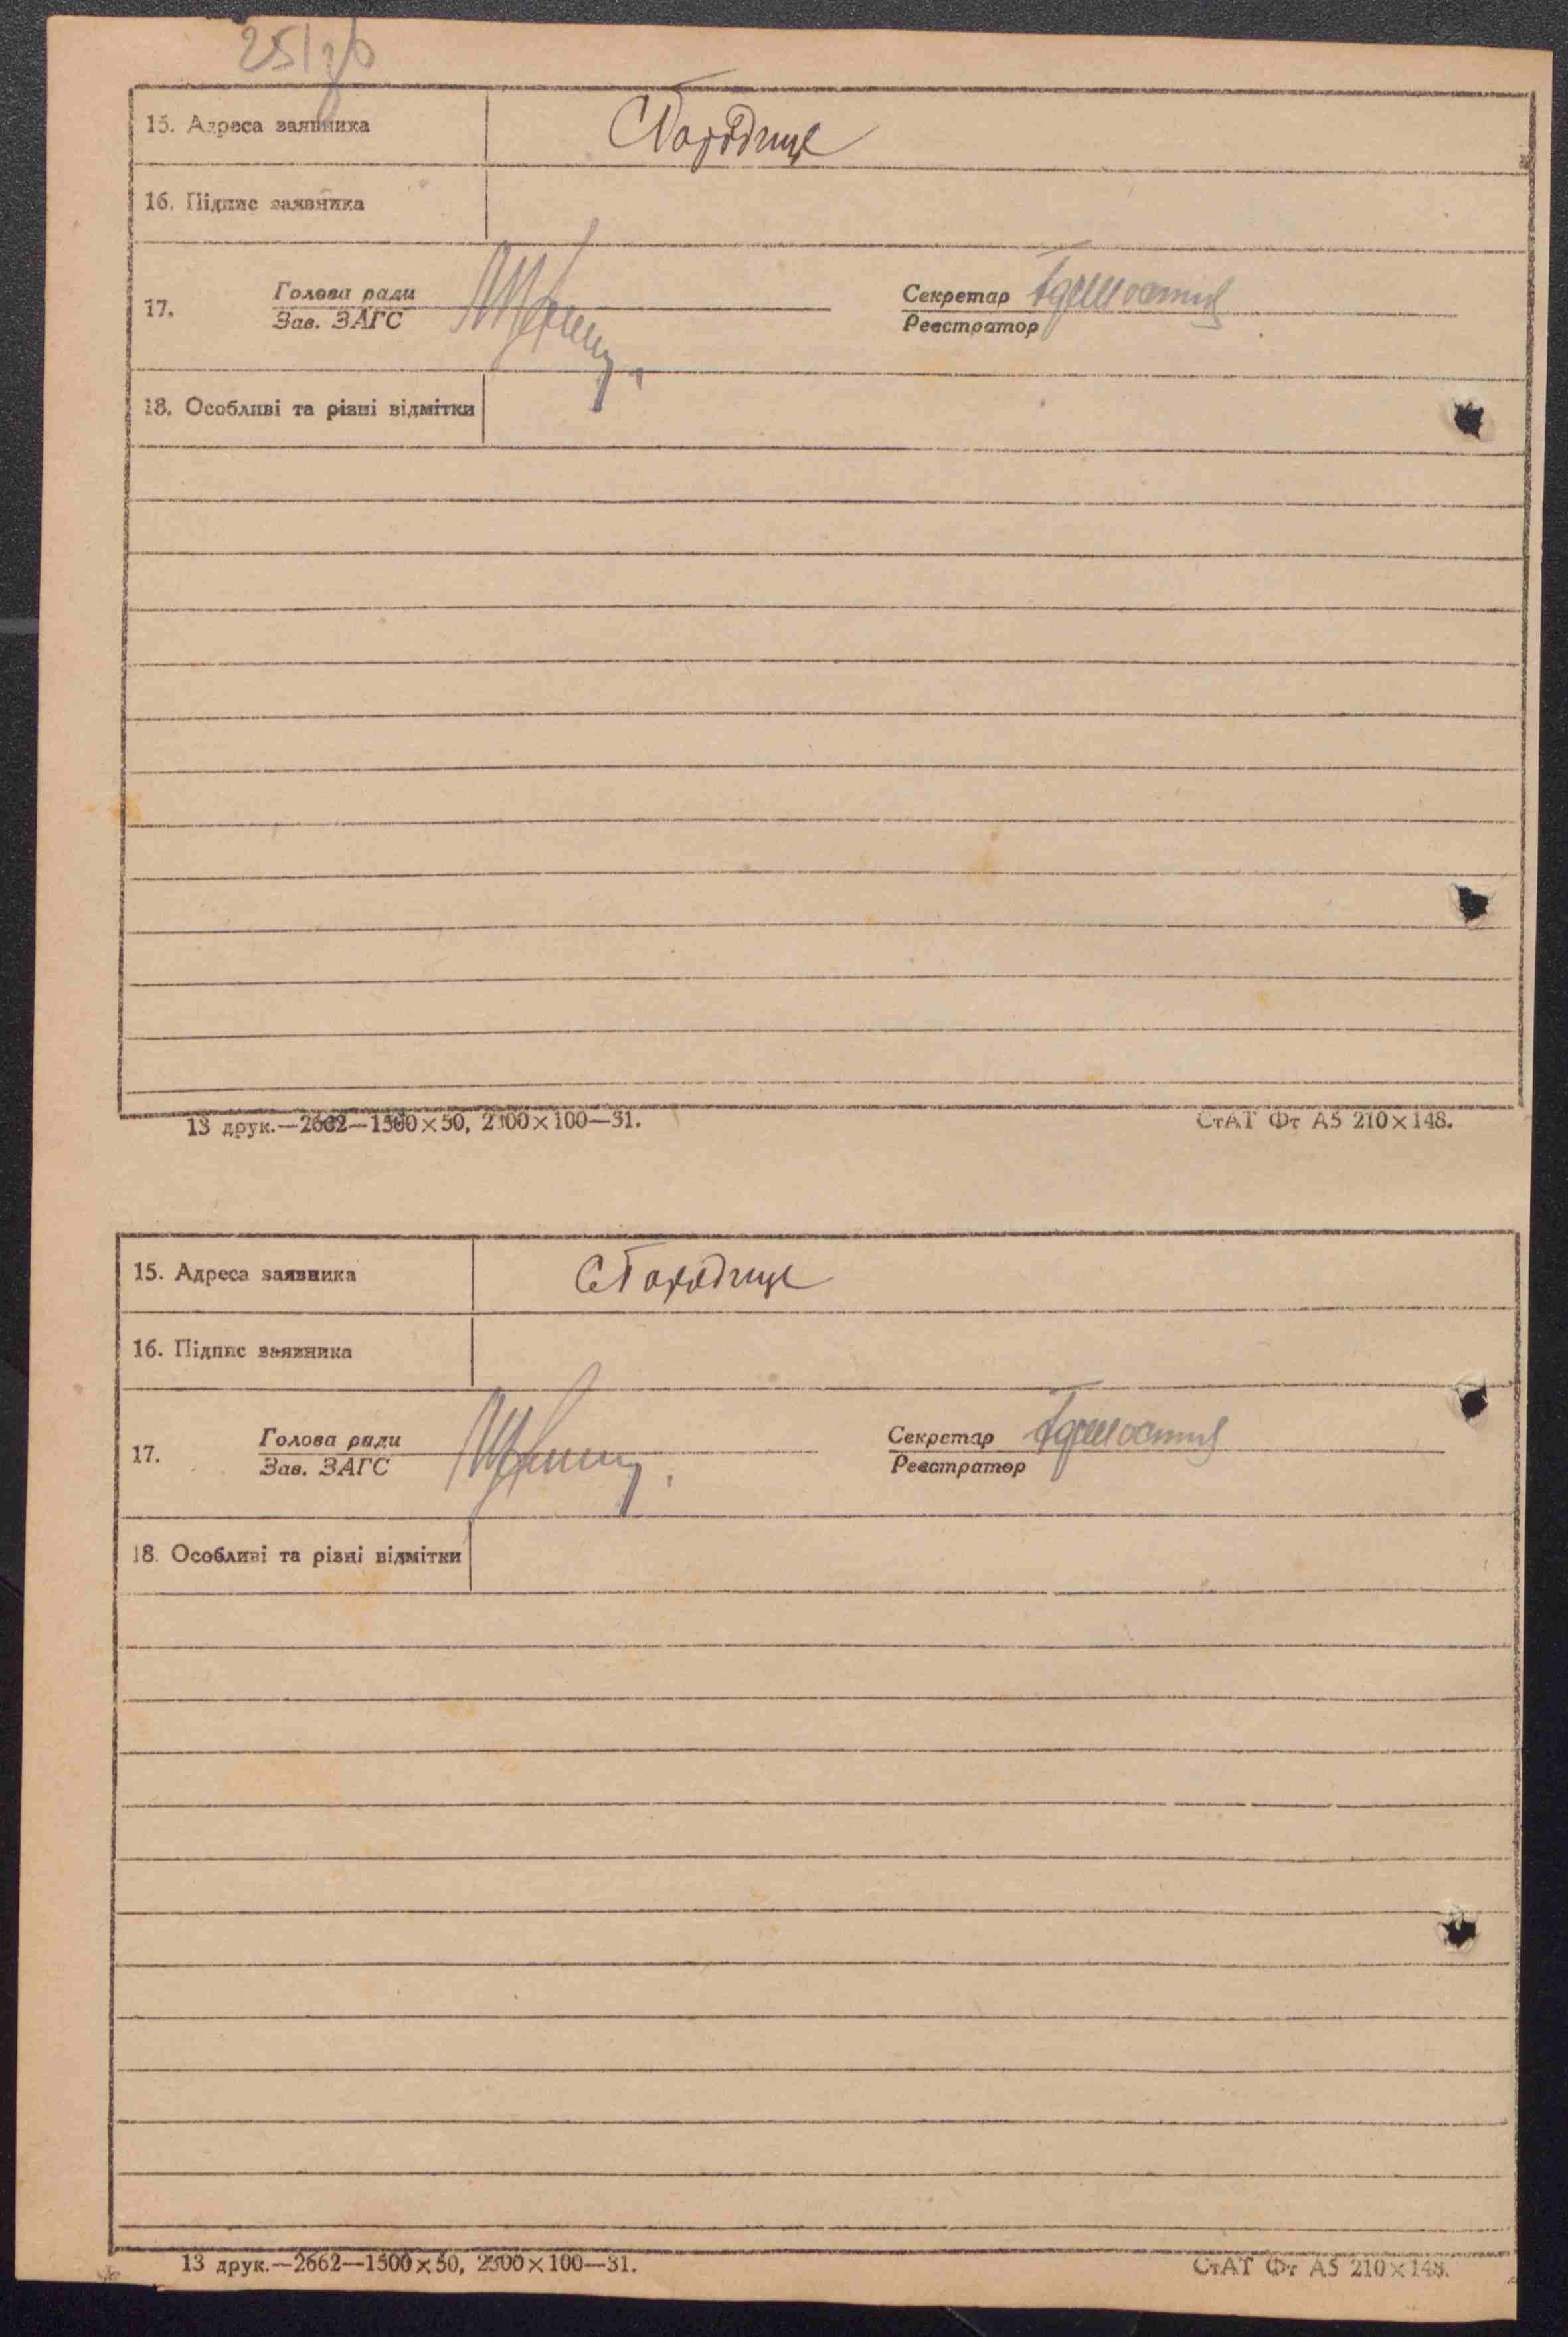 15. Адреса заявника С Городище
16. Підпис заявника
17. Голова ради Секретар
Зав. ЗАГС Реєстратор
18. Особливі та різні відмітки
13 друк.—2662—1500×50, 2300×100—31. СтАТ Фт А5 210×148.
15. Адреса заявника С Городище
16. Підпис заявника
17. Голова ради Секретар
Зав. ЗАГС Реєстратор
18. Особливі та різні відмітки
13 друк.—2662—1500×50, 2300×100—31. СтАТ Фт А5 210×148.